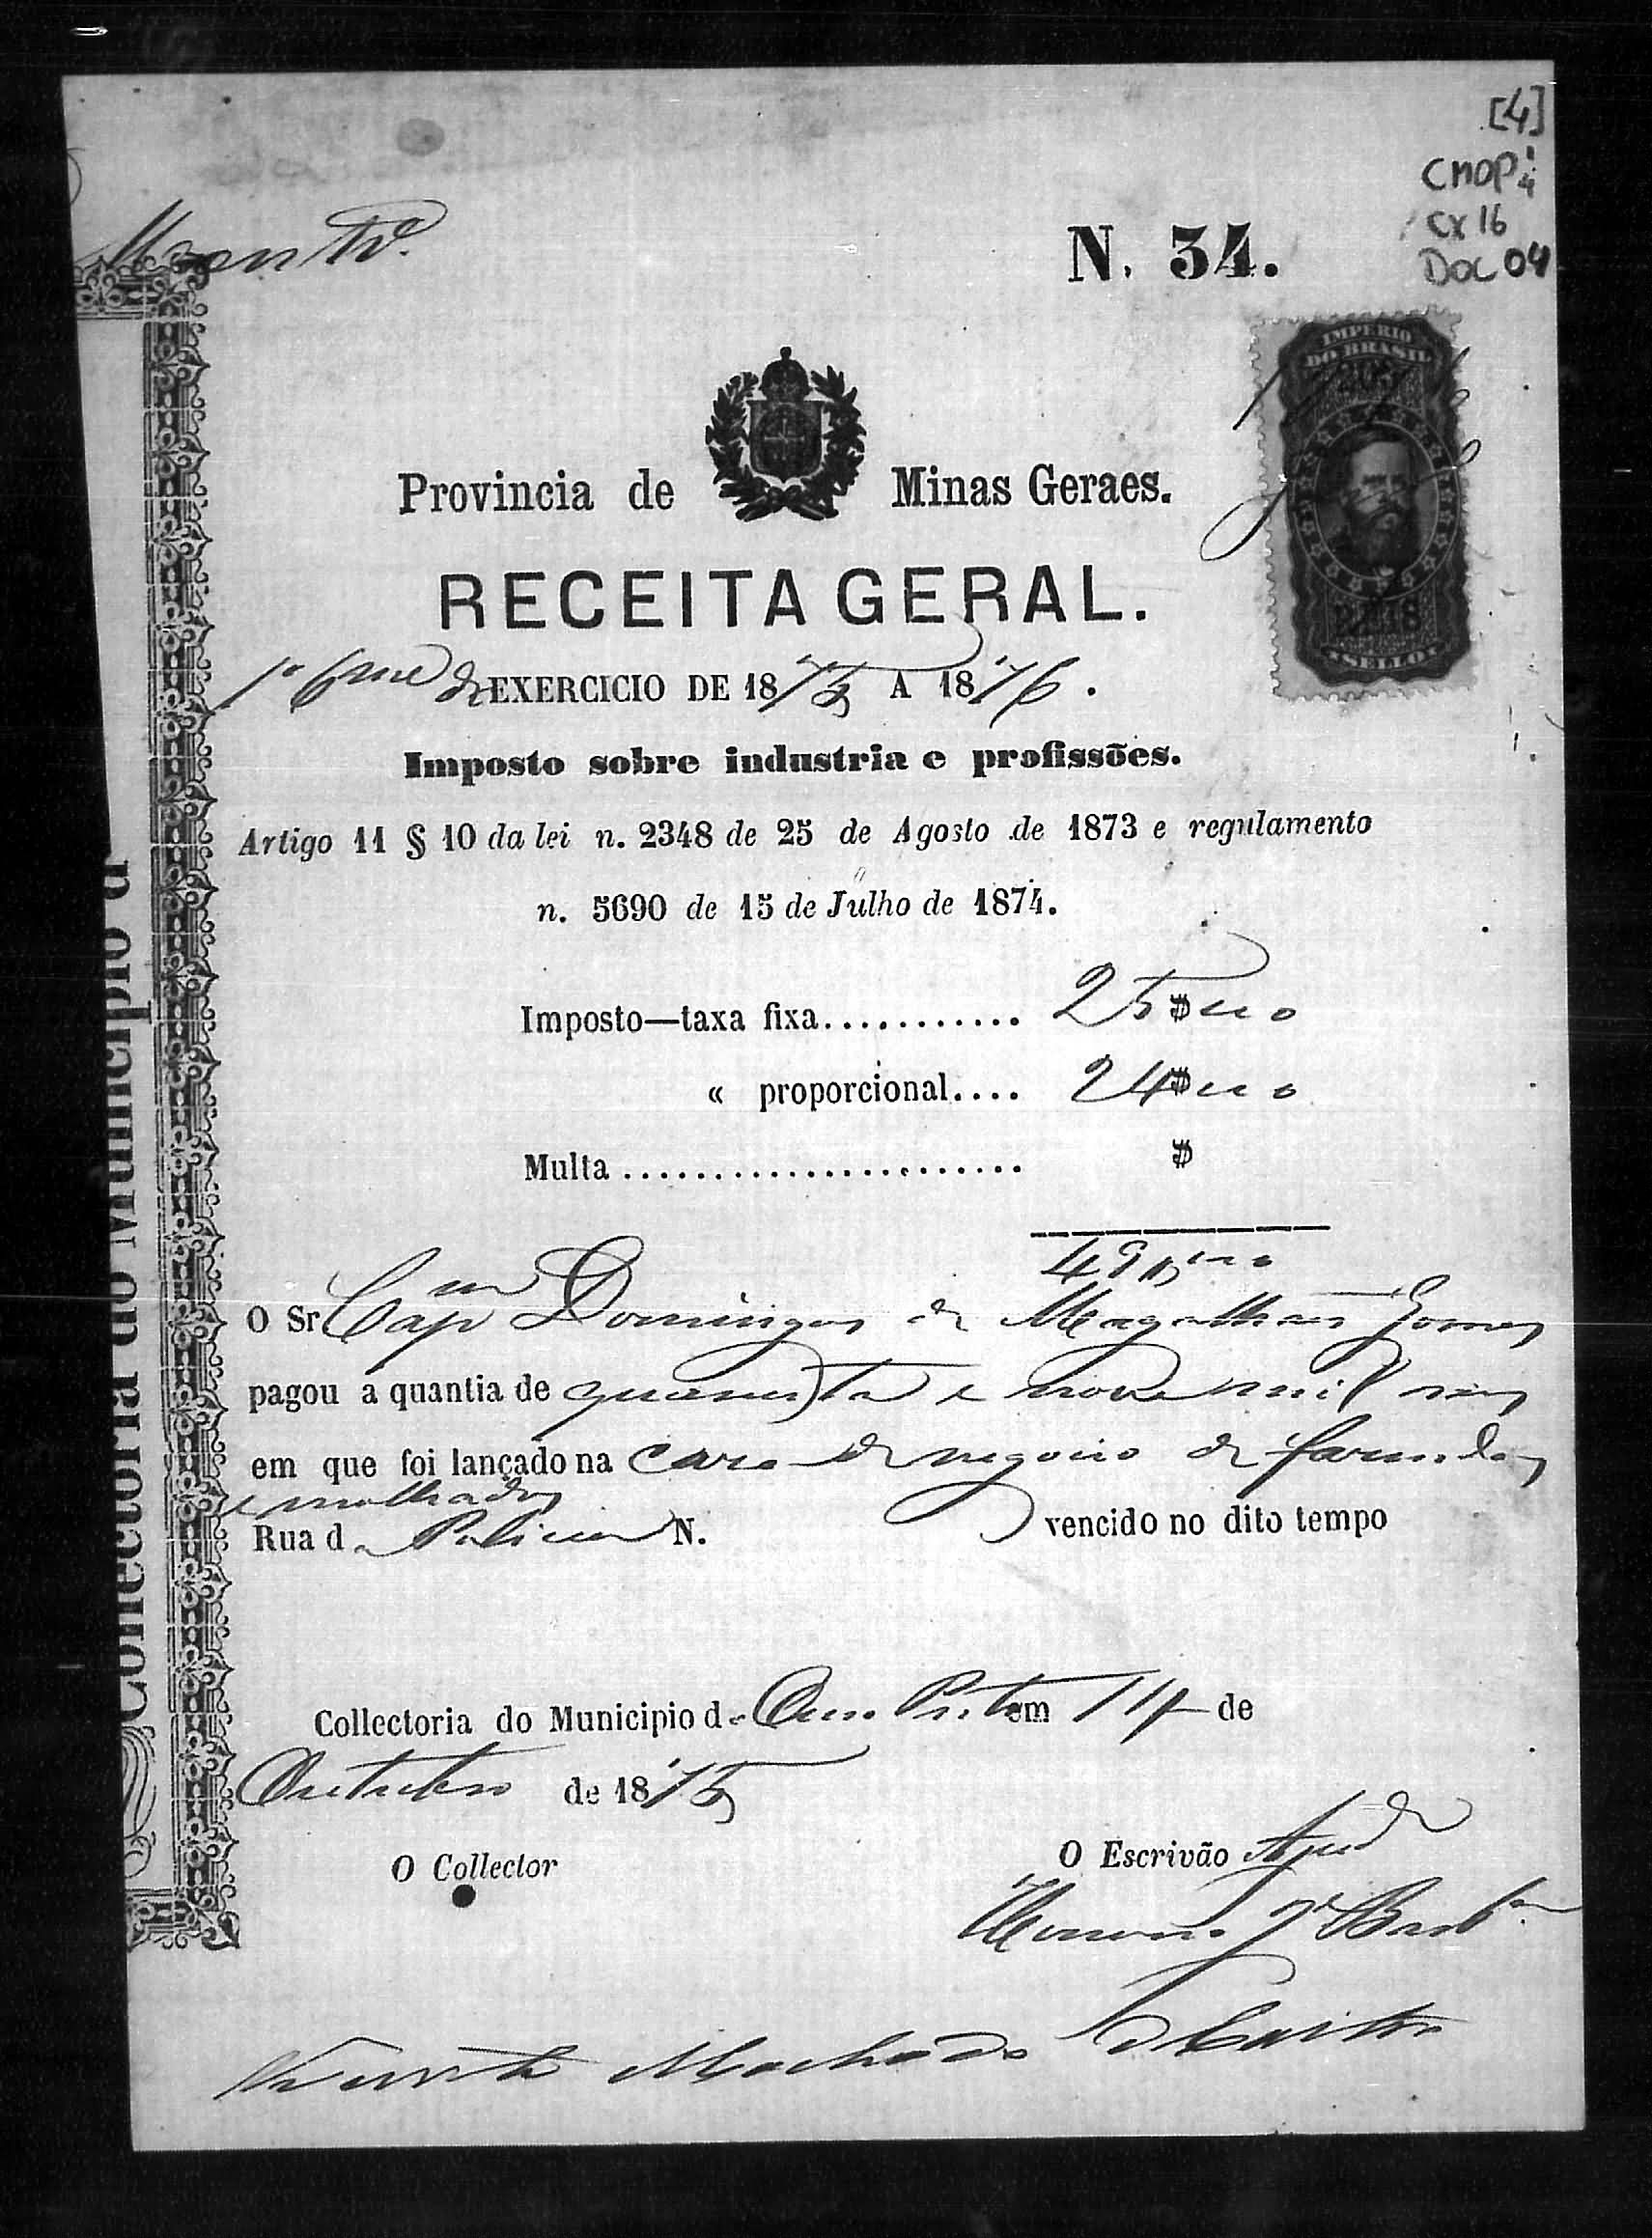 [4]
CMOP
CX 16
DOC 04
N. 34.
IMPERIO
DO BRASIL
SELLO
Provincia de Minas Geraes.
RECEITA GERAL.
EXERCICIO DE 1875 A 1876.
Imposto sobre industria e profissões.
Artigo 11 § 10 da lei n. 2348 de 25 de Agosto de 1873 e regulamento
n. 5690 de 15 de Julho de 1874.
Imposto—taxa fixa........... 25$000
« proporcional.... 24$000
Multa ...................... $
49$000
O Sr Capm Domingos de Magalhães Gomes
pagou a quantia de quarenta e nove mil reis
em que foi lançado na casa de negocio de fazendas
e molhados
Rua d N. vencido no dito tempo
Collectoria do Municipio de Ouro Preto em 14 de
Outubro de 1875
O Collector
O Escrivão Ajude
Vicente Machado de Castro
Collectoria do Municipio d